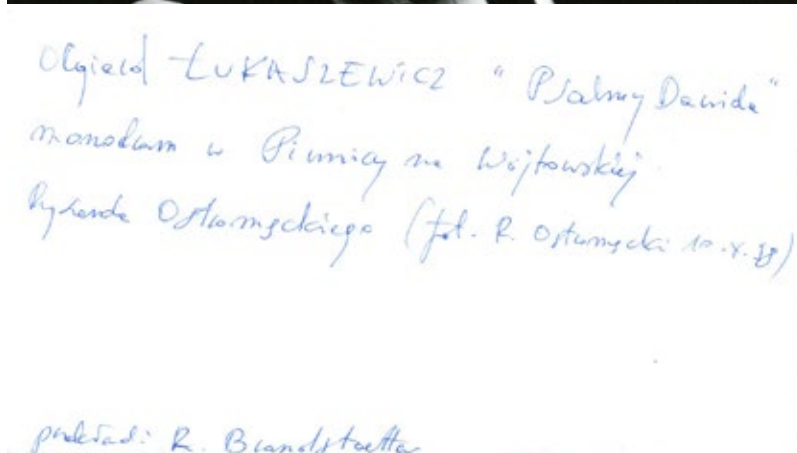 Olgierd ŁUKASZEWICZ "Psalmy Dawida"
monodram w Piwnicy na Wójtowskiej
Ryszarda Ostromęckiego (fot. R. Ostromęcki 10.X.78)
przekład: R. Brandstaetter